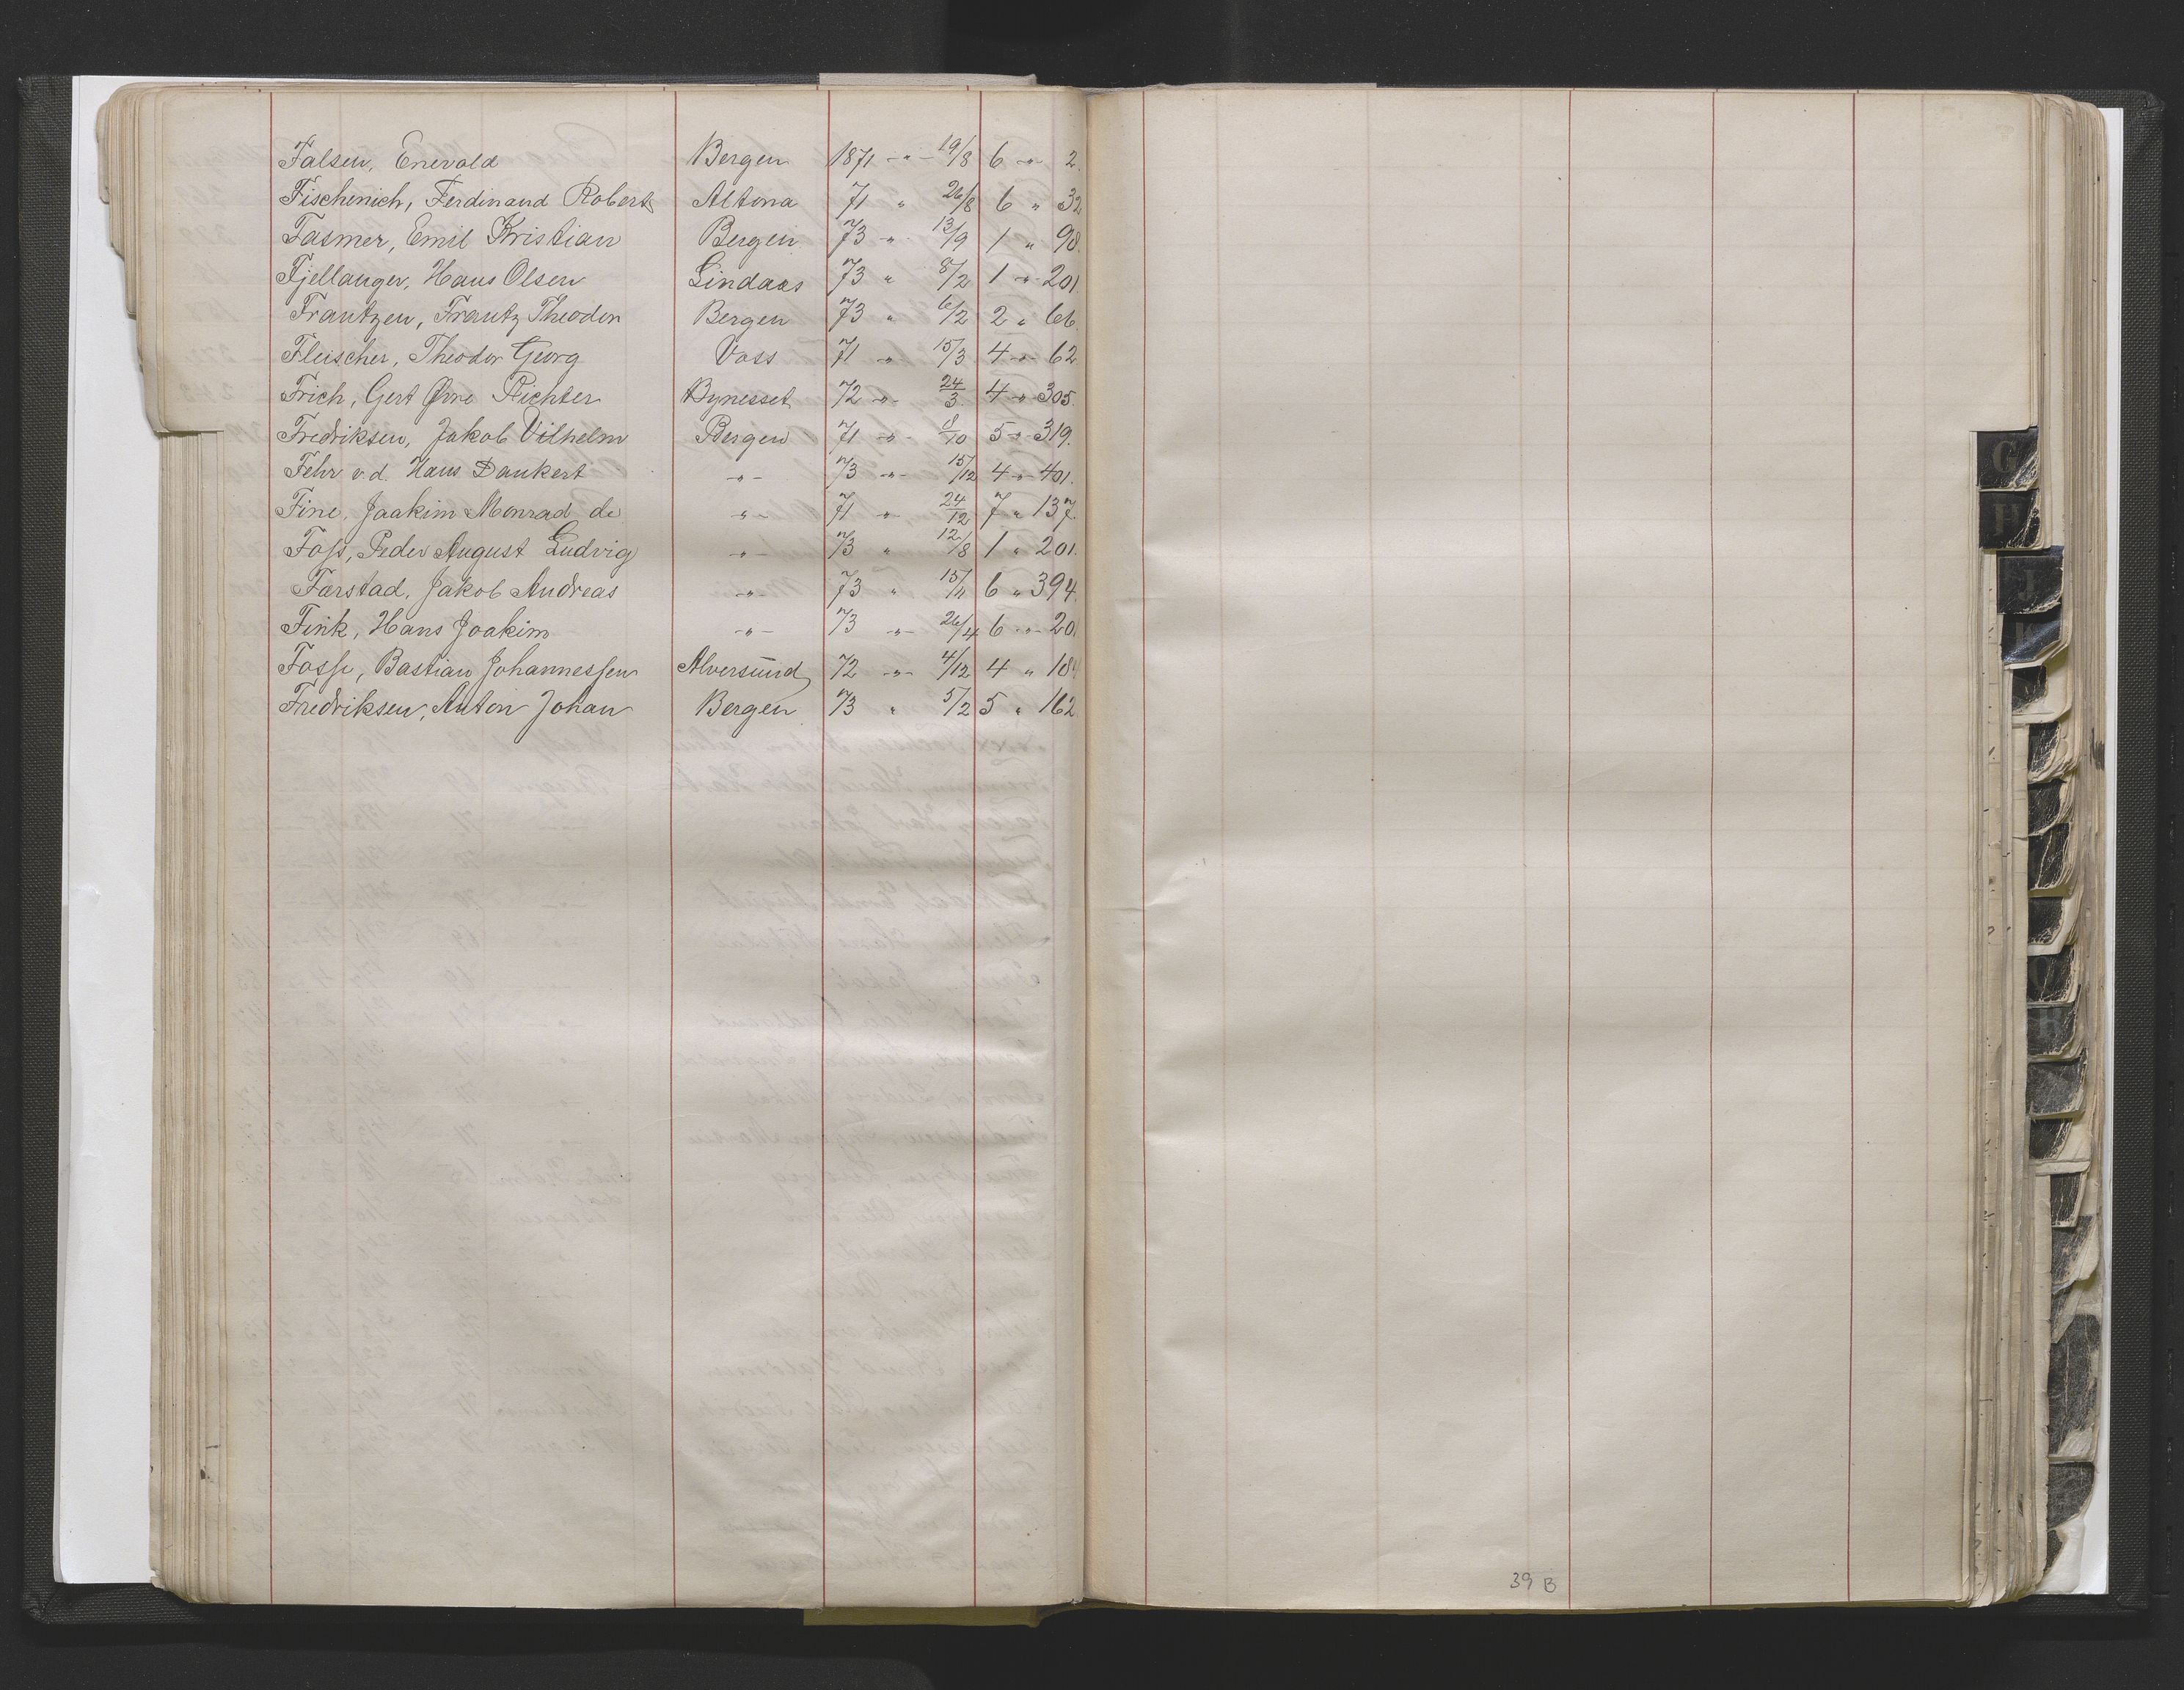 Falsen, Enevold Bergen 1871 -"- 19/8 6 -"- 2.
Fischenich, Ferdinand Robert Altona 71 " 26/8 6 " 32
Fasmer, Emil Kristian Bergen 73 -"- 13/9 1 " 98.
Fjellanger, Hans Olsen Lindaas 73 " 8/2 1 -"- 201.
Frantzen, Frantz Theodor Bergen 73 " 6/2 2 " 66.
Fleischer, Theodor Georg Voss 71 -"- 15/3 4 -"- 62
Frich, Gert Richter Bynesset 72 -"- 24/3 4 -"- 305.
Fredriksen, Jakob Vilhelm Bergen 71 -"- 8/10 5 -"- 319.
Fehr v.d. Hans Dankert -"- 73 -"- 15/12 4 -"- 401.
Fine, Joakim Monrad de -"- 71 -"- 24/12 7 " 137.
Foss, Peder August Ludvig -"- 73 " 12/8 1 " 201.
Farstad, Jakob Andreas -"- 73 " 15/11 6 " 394.
Fink, Hans Joakim -"- 73 -"- 26/4 6 -"- 20
Fosse, Bastian Johannessen Alversund 72 -"- 4/12 4 " 184
Fredriksen, Anton Johan Bergen 73 " 5/2 5 " 162.
G
H
J
K
39 B